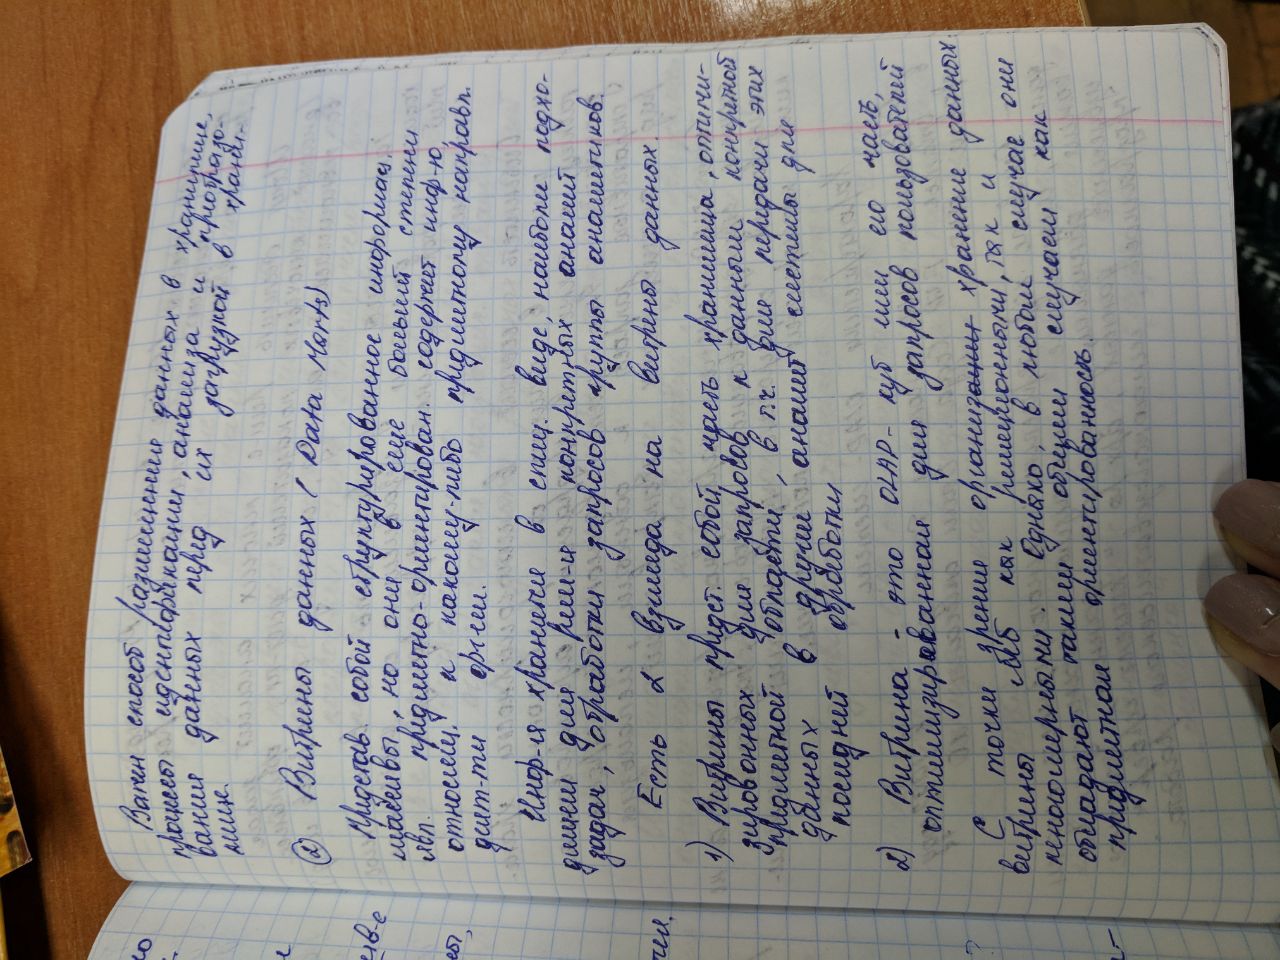 Важен способ размещения данных в хранилище,
процессы идентификации, анализа и преобразо-
вания данных перед их загрузкой в храни-
лище.
② Витрины данных (Data Marts)
Представ. собой структурированное информац.
массивы, но они в еще большей степени
явл. предметно-ориентирован. содержат инф-ю,
относящ. к какому-либо предметному направл.
деят-ти орг-ии.
Инф-я хранится в спец. виде, наиболее подхо-
дящем для реш-я конкретных аналит
задач, обработки запросов группы аналитиков.
Есть 2 взгляда на витрины данных.
1) Витрины предст. собой часть хранилища, оптими-
зированных для запросов к данным конкретной
предметной области, в т.ч. для передачи этих
данных в другие аналит системы для
последней обработки
2) Витрина - это OLAP-куб или его часть,
оптимизированная для запросов пользователей
С точки зрения организации хранение данных
витрины м/б как реляционными, так и
многомерными. Однако, в любом случае они
обладают таким общим случаем как
предметная ориентированность.
но
ів-е
ы,